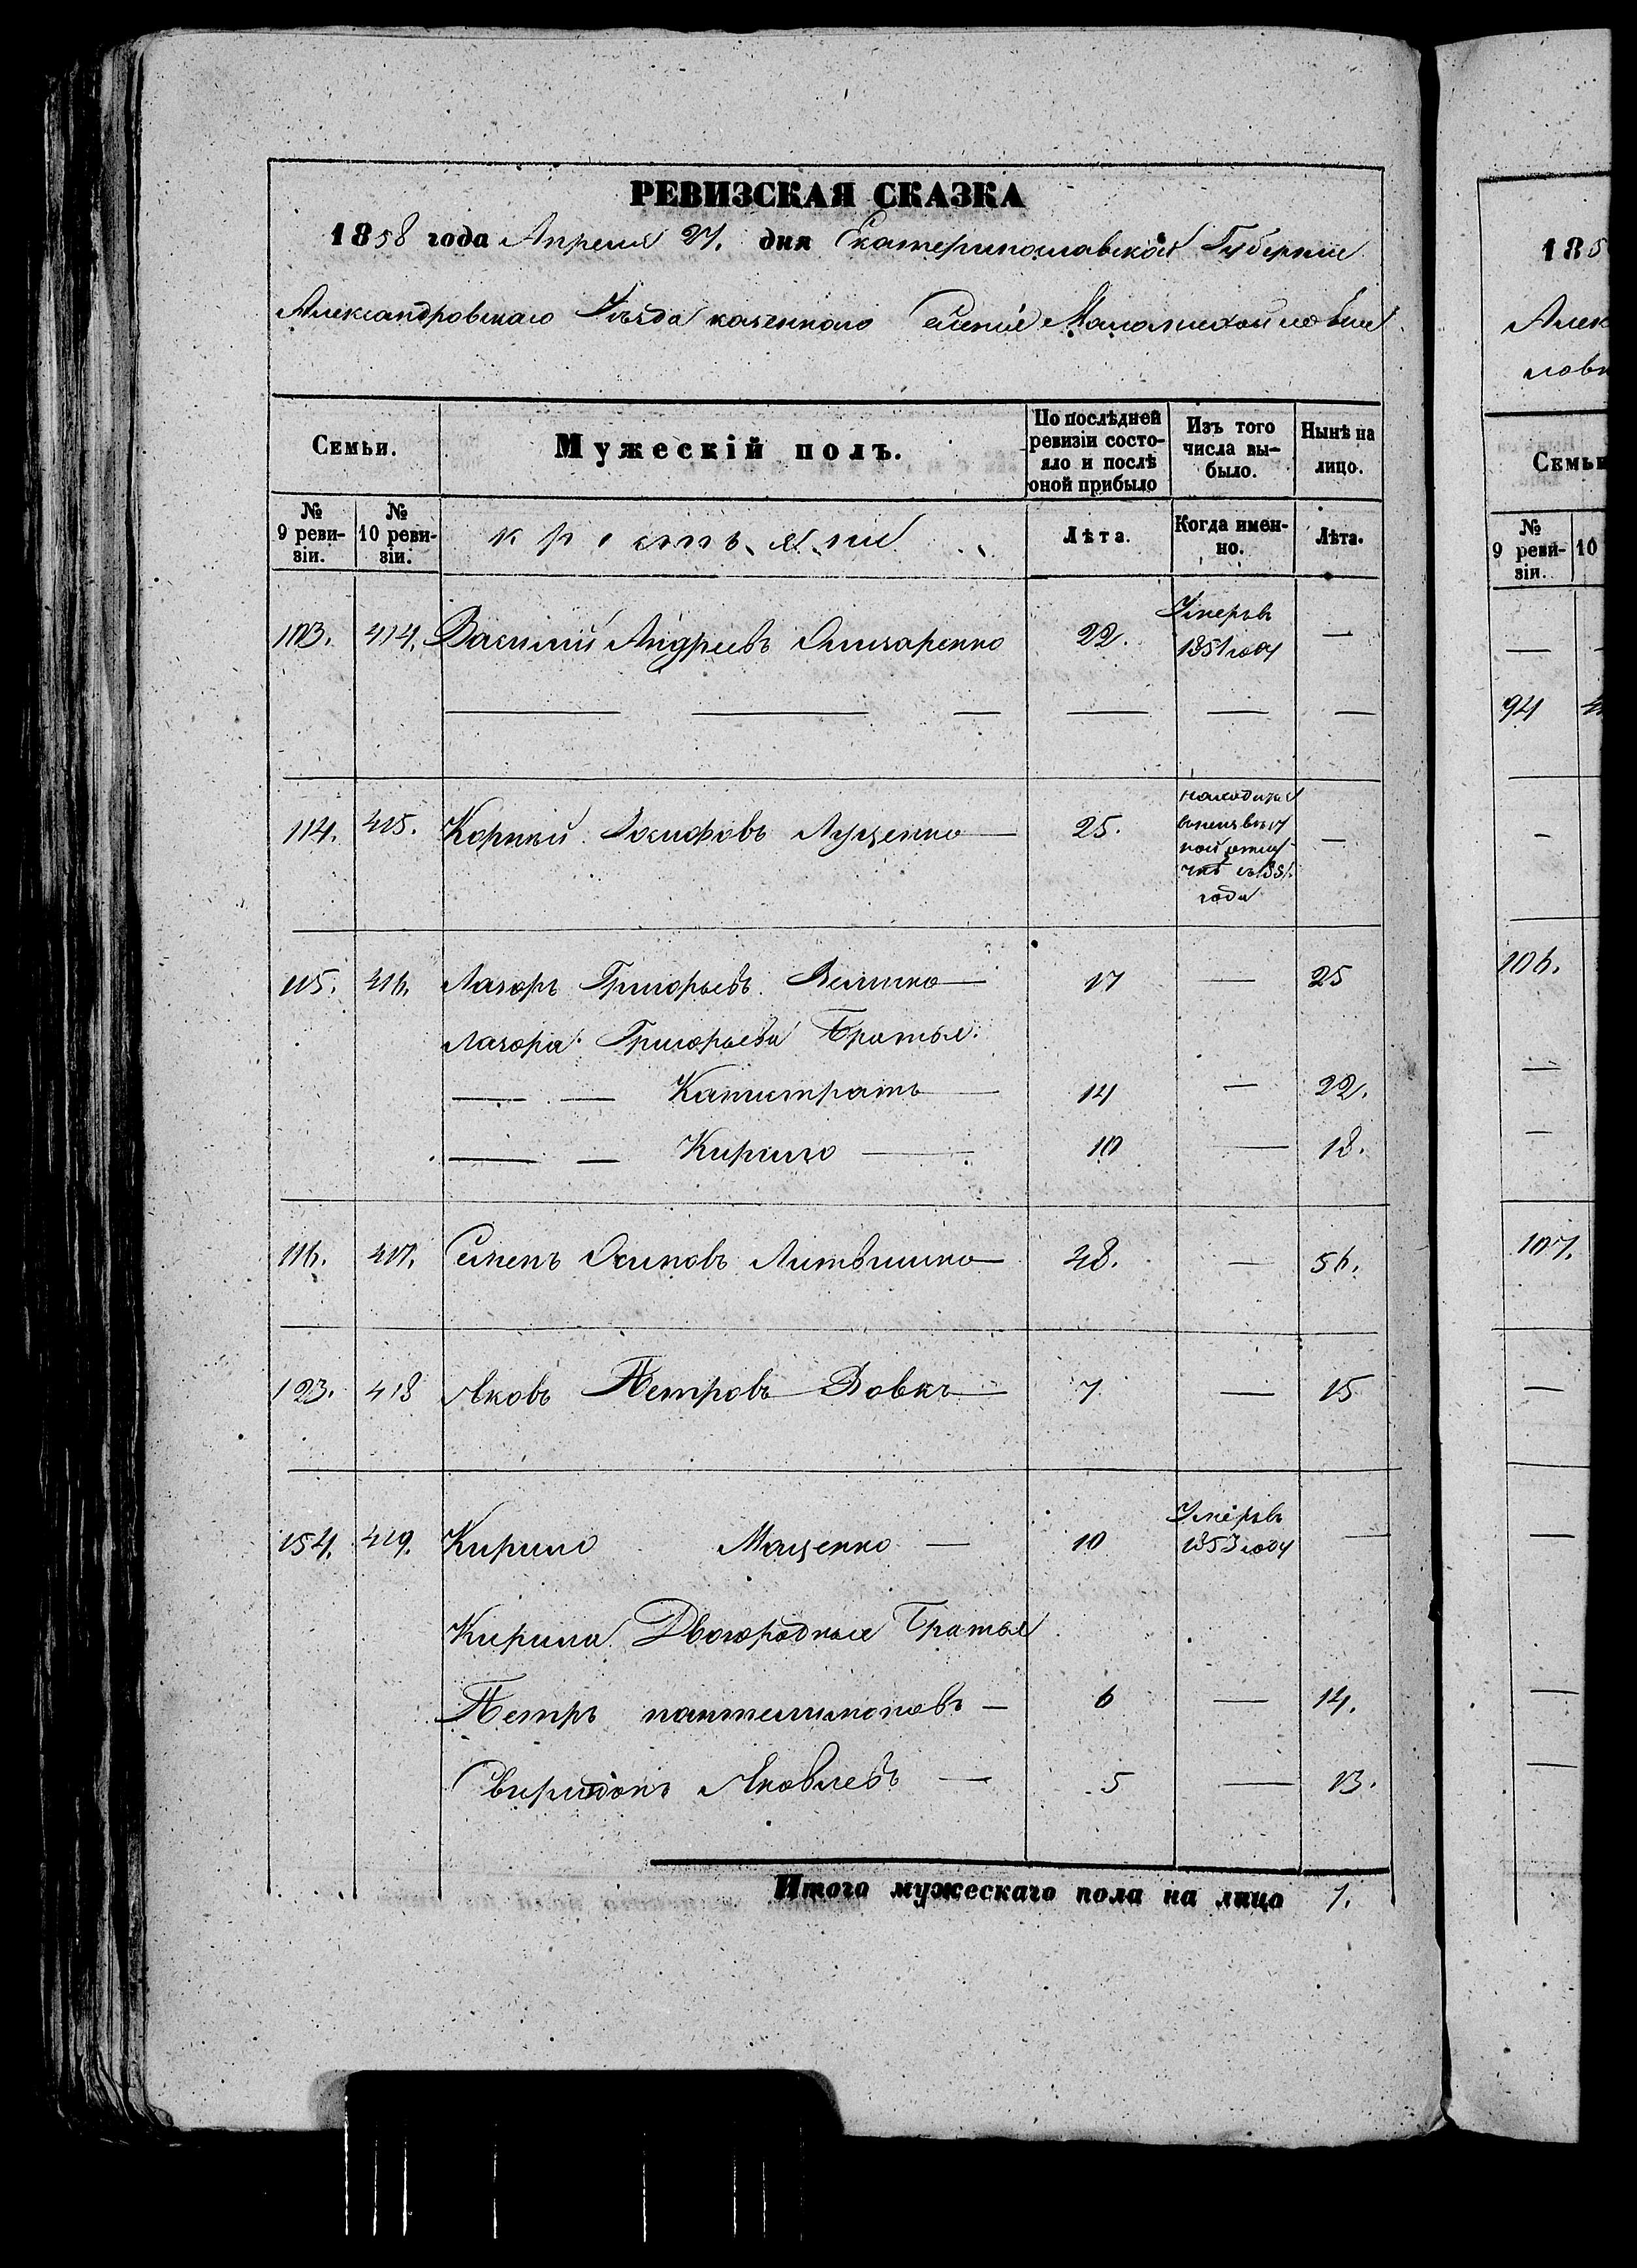 РЕВИЗСКАЯ СКАЗКА
1858 года Апреля 27. дня Екатеринославской Губернии
Александровскаго Уѣзда казеннаго Селенія Маломихайловки
Семьи. Мужескій полъ. По послѣдней ревизіи состояло и послѣ оной прибыло Изъ того числа вы-было. Нынѣ на лицо.
№ 9 реви-зіи. № 10 реви-зіи. крестьяни Лѣта. Когда имен-но. Лѣта.
103. 414. Василий Андреевъ Гончаренко 22. Умеръ въ 1851 году —
114. 415. Корней Іосифовъ Луценко 25. находится 1851 года —
115. 416. Лазоръ Григорьевъ Величко 17 — 25
Лазора Григорьева Братья:
— — Калистратъ 14 — 22.
— — Кирило 10 — 18.
116. 417. Семенъ Осиповъ Литвишко 48. — 56.
123. 418 Яковъ Петровъ Вовкъ 7 — 15
154. 419. Кирило Маценко — 10 Умеръ въ 1853 году —
Кирила Двоюродные Братья
Петръ пантелимоновъ — 6 — 14.
Свиридонъ Яковлевъ — 5 — 13.
Итого мужескаго пола на лицо 7.
185
Алек
ловк
Семьи
№ 9 реви-зіи. 10
94
106.
107.